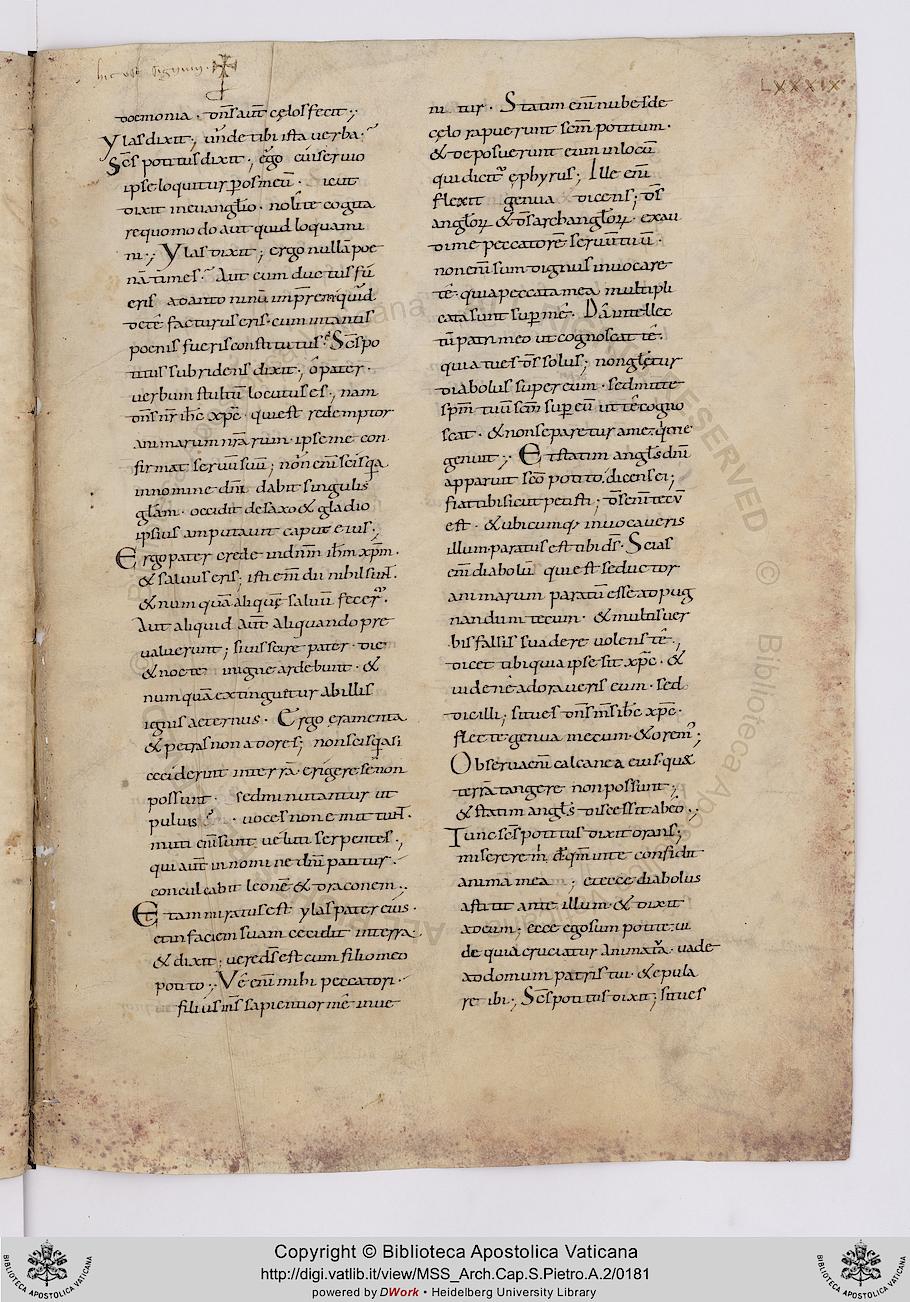 hic est signum.
LXXXIX
doemonia · dn̄s aut̄ cęlos fecit ;
ylas dixit ; unde tibi ista verba ·
Sc̄s potitus dixit ; ego cui servio
ipse loquitur p os meū · sicut
dixit in evanglio · nolite cogita
re quomodo aut quid loquami
ni ; ylas dixit ; ergo nullā poe
nā times · Aut cum ductus fu
eris ad antoninū imp̄rem quid
de te facturus eris · cum in tantis
poenis fueris constitutus · Sc̄s po
titus subridens dixit ; ô pater ·
verbum stultū locutus es ; nam
dn̄s nr̄ ihc̄ xp̄c · qui est redemptor
animarum nr̄arum · ipse me con
firmat servū suū ; non enī scis q̄a
in nomine dn̄i dabit singulis
glām · occidit de saxo & gladio
ipsius amputavit caput eius ;
Ergo pater crede in dnm̄ ihm̄ xpm̄ ·
& salvus eris ; isti enī dii nihil sunt ·
& numquā aliquē salvū fecer ·
Aut aliquid aut aliquando pre
valuerunt ; si vis scire pater · die
& nocte in igne ardebunt · &
numquā extinguetur ab illis
ignis aeternus · Ergo eramenta
& petras non adores ; non scis q̄a si
ceciderint in terrā · erigere se non
possunt · sed minutantur ut
pulvis · voces non emittunt ·
muti enī sunt · veluti serpentes ;
qui aut̄ in nomine dn̄i patitur ·
conculcabit leonē & draconem ;
Et ammiratus est ylas pater eius ·
et in faciem suam cecidit in terra ·
& dixit ; vere ds̄ est cum filio meo
potito ; Vê enī mihi peccatori ·
filius m̄s sapientior mê inve
nitur · Statim enī nubes de
cęlo rapuerunt scm̄ potitum ·
& deposuerunt eum in locū
qui dicit ephyrus ; Ille enī
flexit genua & dicens ; ds̄
anglorum & ds̄ archanglorum · exau
di me peccatorē servū tuū ·
non enī sum dignus invocare
tê · quia peccata mea multipli
cata sunt sup mê · Dā intellec
tū patri meo ut cognoscat tê ·
quia tu es ds̄ solus ; non glētur
diabolus super eum · sed mitte
spm̄ tuū scm̄ sup eū ut tê cogno
scat · & non separetur a me · qui me
genuit ; Et statim angls̄ dnī
apparuit scō potito dicens ei ;
fiat tibi sicut petisti ; ds̄ enī tecū
est · & ubicumq; invocaveris
illum paratus est tibi ds̄ · Scias
enī diabolū qui est seductor
animarum paratū esse ad pug
nandum tecum · & multis ver
bis fallis suadere volens tê ;
dicet tibi quia ipse sit xp̄c · &
vide nê adoraveris eum · sed
dic illi ; si tu es dn̄s m̄s ihc̄ xp̄c ·
flecte genua mecum · & orem ;
Observa enī calcanea eius · quae
terrā tangere non possunt ;
& statim angls̄ discessit ab eo ;
Tunc sc̄s potitus dixit orans ;
miserere m̄ ds̄ qm̄ in te confidit
anima mea ; et ecce diabolus
astitit ante illum · & dixit
ad eum ; ecce ego sum potite · vi
de quia cruciatur anima tua · vade
ad domum patris tui · & epula
re ibi ; Sc̄s potitus dixit ; si tu es
Copyright © Biblioteca Apostolica Vaticana
http://digi.vatlib.it/view/MSS_Arch.Cap.S.Pietro.A.2/0181
powered by DWork • Heidelberg University Library
BIBLIOTECA APOSTOLICA VATICANA
BIBLIOTECA APOSTOLICA VATICANA